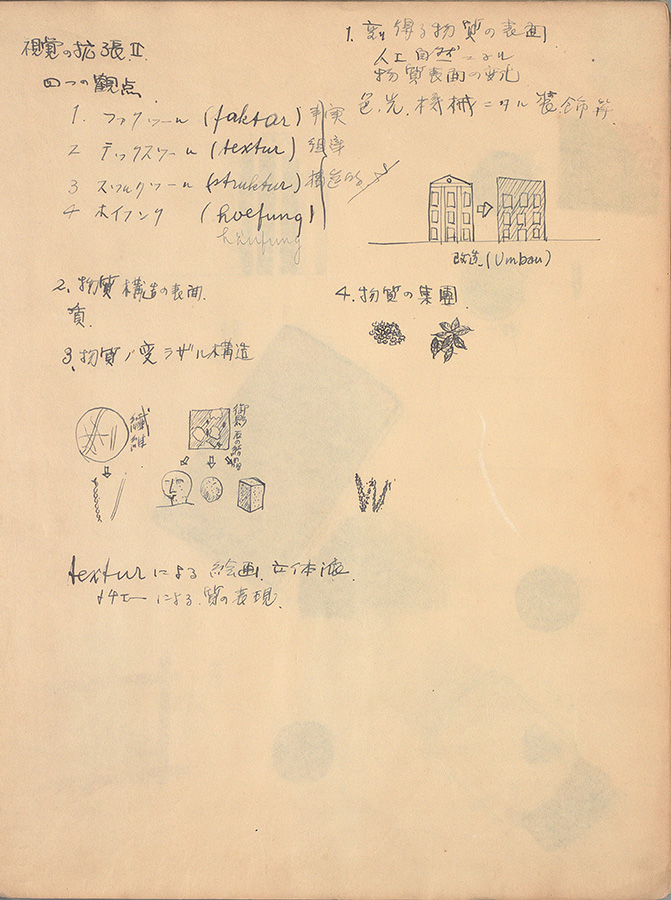 視覚の拡張 II.
四つの観点
1. ファクツール (faktar) 事実
2 テックスツール (textur) 組率
3 スツルクツール (struktur) 構造的
4 ホイフング (hoefung)
haufung
1. 変り得る物質の表面
人工自然ニヨル
物質表面の変化
色.光.機械ニヨル装飾
改造 (Umbau)
2. 物質構造の表面.
質.
3. 物質ノ変ラザル構造
繊維
御影石の結晶
4. 物質の集團
texturによる絵画.立体派.
による.質の表現.